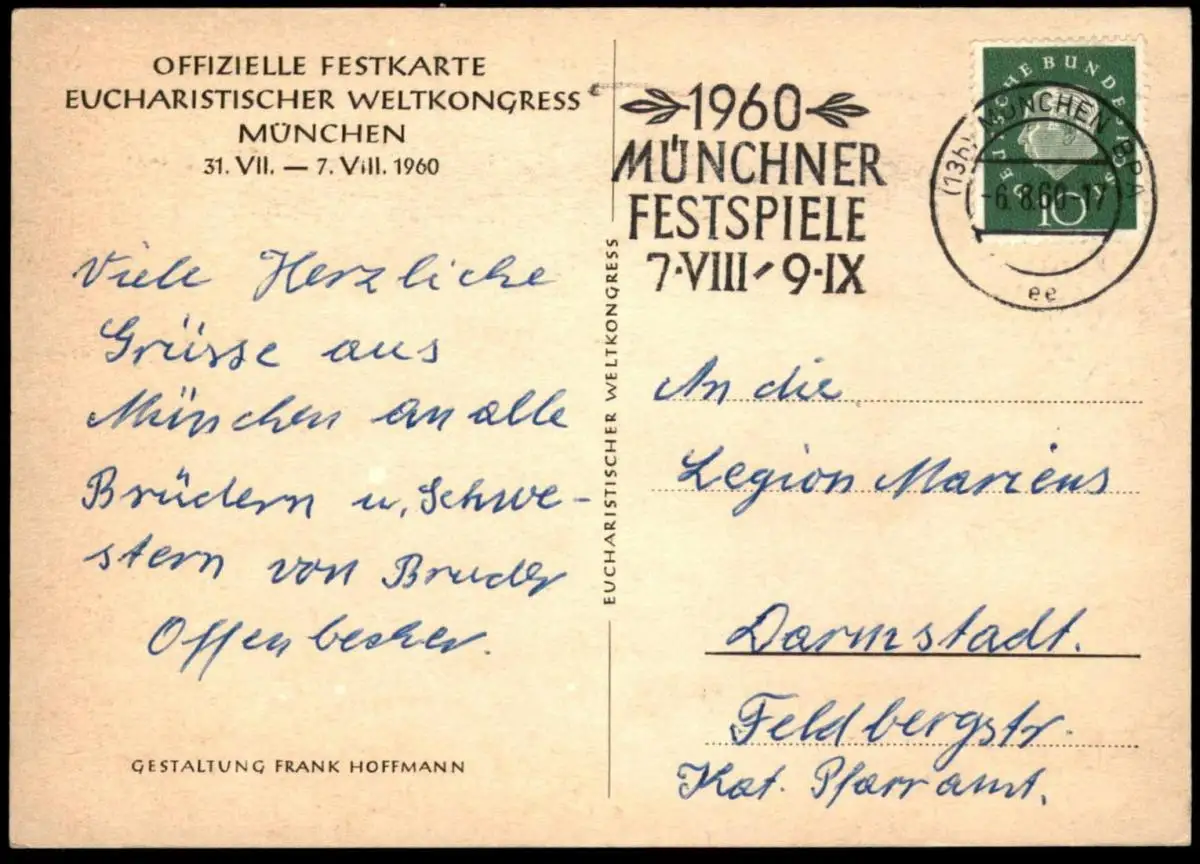 OFFIZIELLE FESTKARTE
EUCHARISTISCHER WELTKONGRESS
MÜNCHEN
31. VII. — 7. VIII. 1960
Viele Herzliche
Grüsse aus
München an alle
Brüdern u. Schwe-
stern von Bruder
Offenbecher.
GESTALTUNG FRANK HOFFMANN
EUCHARISTISCHER WELTKONGRESS
1960
MÜNCHNER
FESTSPIELE
7·VIII - 9·IX
DEUTSCHE BUNDESPOST
10
(13b) MÜNCHEN BPA
-6.8.60-17
ee
An die
Legion Mariens
Darmstadt.
Feldbergstr.
Kat. Pfarramt.